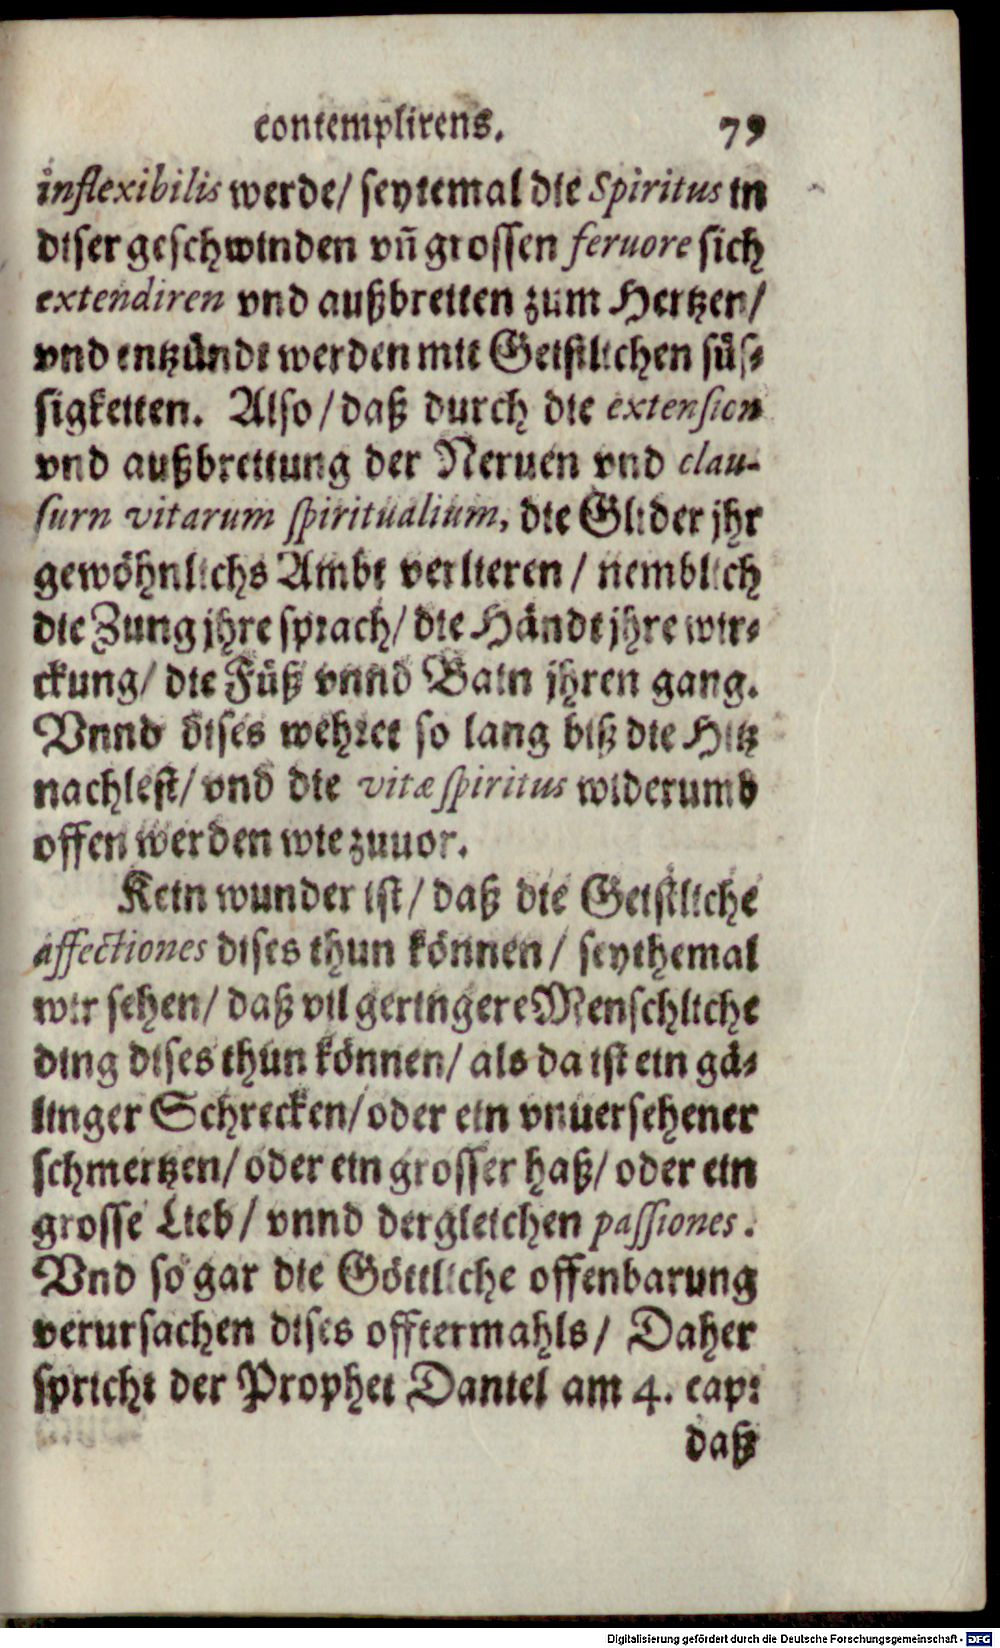 contemplirens. 79
inflexibilis werde/ seytemal die Spiritus in
diser geschwinden vñ grossen feruore sich
extendiren vnd außbreiten zum Hertzen/
vnd entzündt werden mit Geistlichen süs-
sigkeiten. Also/ daß durch die extension
vnd außbreitung der Neruen vnd clau-
surn vitarum spiritualium, die Glider jhr
gewöhnlichs Ambt verlieren/ nemblich
die Zung jhre sprach/ die Händt jhre wir-
ckung/ die Füß vnnd Bain jhren gang.
Vnnd dises wehret so lang biß die Hitz
nachlest/ vnd die vitæ spiritus widerumb
offen werden wie zuuor.
Kein wunder ist/ daß die Geistliche
affectiones dises thun können/ seythemal
wir sehen/ daß vil geringere Menschliche
ding dises thun können/ als da ist ein gä-
linger Schrecken/ oder ein vnuersehener
schmertzen/ oder ein grosser haß/ oder ein
grosse Lieb/ vnnd dergleichen passiones.
Vnd so gar die Göttliche offenbarung
verursachen dises offtermahls/ Daher
spricht der Prophet Daniel am 4. cap:
daß
Digitalisierung gefördert durch die Deutsche Forschungsgemeinschaft - DFG